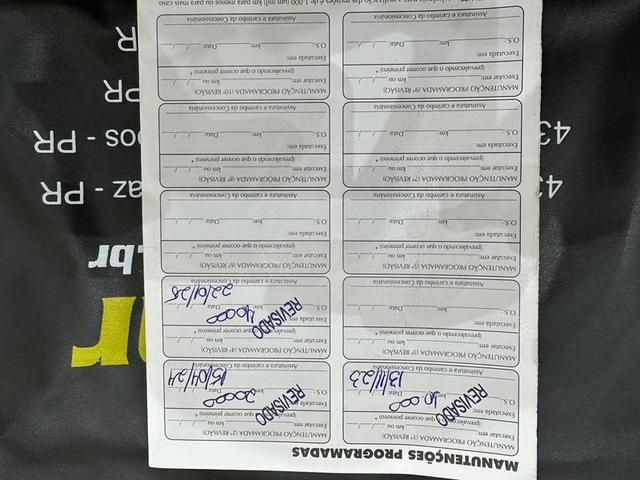 MANUTENÇÕES PROGRAMADAS
MANUTENÇÃO PROGRAMADA (1ª REVISÃO)
Executar em: km ou / /
(prevalecendo o que ocorrer primeiro) *
Executada em:
REVISADO
O.S.: km: Data: / /
10.000 13/11/23
Assinatura e carimbo da Concessionária
MANUTENÇÃO PROGRAMADA (2ª REVISÃO)
Executar em: km ou / /
(prevalecendo o que ocorrer primeiro) *
Executada em:
REVISADO
O.S.: km: Data: / /
20.000 15/04/24
Assinatura e carimbo da Concessionária
MANUTENÇÃO PROGRAMADA (3ª REVISÃO)
Executar em: km ou / /
(prevalecendo o que ocorrer primeiro) *
Executada em:
O.S.: km: Data: / /
Assinatura e carimbo da Concessionária
MANUTENÇÃO PROGRAMADA (4ª REVISÃO)
Executar em: km ou / /
(prevalecendo o que ocorrer primeiro) *
Executada em:
REVISADO
O.S.: km: Data: / /
40.000 22/01/25
Assinatura e carimbo da Concessionária
MANUTENÇÃO PROGRAMADA (5ª REVISÃO)
Executar em: km ou / /
(prevalecendo o que ocorrer primeiro) *
Executada em:
O.S.: km: Data: / /
Assinatura e carimbo da Concessionária
MANUTENÇÃO PROGRAMADA (6ª REVISÃO)
Executar em: km ou / /
(prevalecendo o que ocorrer primeiro) *
Executada em:
O.S.: km: Data: / /
Assinatura e carimbo da Concessionária
MANUTENÇÃO PROGRAMADA (7ª REVISÃO)
Executar em: km ou / /
(prevalecendo o que ocorrer primeiro) *
Executada em:
O.S.: km: Data: / /
Assinatura e carimbo da Concessionária
MANUTENÇÃO PROGRAMADA (8ª REVISÃO)
Executar em: km ou / /
(prevalecendo o que ocorrer primeiro) *
Executada em:
O.S.: km: Data: / /
Assinatura e carimbo da Concessionária
MANUTENÇÃO PROGRAMADA (9ª REVISÃO)
Executar em: km ou / /
(prevalecendo o que ocorrer primeiro) *
Executada em:
O.S.: km: Data: / /
Assinatura e carimbo da Concessionária
MANUTENÇÃO PROGRAMADA (10ª REVISÃO)
Executar em: km ou / /
(prevalecendo o que ocorrer primeiro) *
Executada em:
O.S.: km: Data: / /
Assinatura e carimbo da Concessionária
para a realização das revisões é de ± 1.000 (um mil) km para menos ou para mais caso
.br
az - PR
43
os - PR